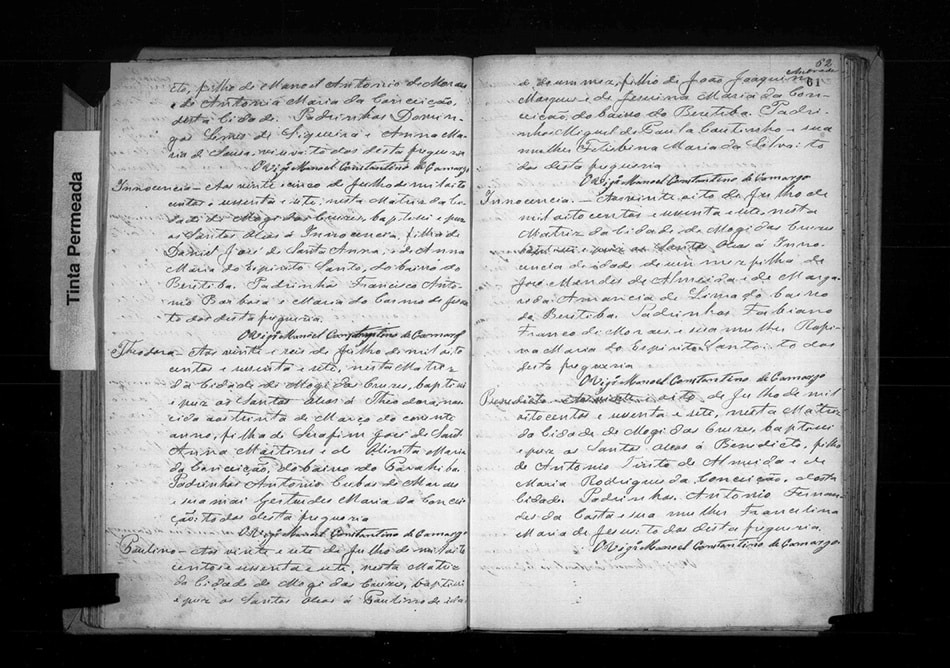 Tinta Permeada
cto, filho de Manoel Antonio de Moraes
e de Antonia Maria da Conceição,
desta Cidade. Padrinhos Domin-
gos Lemes de Siqueira e Anna Ma-
ria de Sousa, desta freguesia
O Vigº Manoel Constantino de Camargo
Innocencia – Aos vinte e cinco de Julho de mil oito
centos e noventa e sete, nesta Matriz da Ci-
dade de Mogi das Cruzes, baptisei e puz
os Santos Oleos á Innocencia, filha de
Daniel José de Sant'Anna, e de Anna
Maria do Espirito Santo, do bairro do
Beritiba. Padrinhos Francisco Anto-
nio Barbosa e Maria do Carmo de Jesus
todos desta freguesia.
O Vigº Manoel Constantino de Camargo
Theodora – Aos vinte e seis de Julho de mil oito
centos e noventa e sete, nesta Matriz
da Cidade de Mogi das Cruzes, baptisei
e puz os Santos Oleos á Theodora, nas-
cida aos trinta de Março do corrente
anno, filha de Serafim José de Sant'
Anna Martins e de Maria
da Conceição, do bairro do Parahiba.
Padrinhos Antonio Cubas de Moraes
e sua mai Gertrudes Maria da Concei-
ção: todos desta freguesia
O Vigº Manoel Constantino de Camargo
Paulino – Aos vinte e sete de Julho de mil oito
centos e noventa e sete, nesta Matriz
da Cidade de Mogi das Cruzes, baptisei
e puz os Santos Oleos á Paulino de ida-
62
Andrade
61
de de um mez, filho de João Joaquim
Marques e de Jesuina Maria da Con-
ceição, do bairro do Beritiba. Padri-
nhos Miguel de Paula Coutinho e sua
mulher Felisbina Maria da Silva: to
dos desta freguesia
O Vigº Manoel Constantino de Camargo
Innocencia. – Aos vinte e oito de Julho de
mil oito centos e noventa e sete, nesta
Matriz da Cidade de Mogi das Cruzes
baptisei e puz os Santos Oleos á Inno-
cencia de idade de um mez, filha de
José Mendes de Almeida e de Marga-
rida Amancia de Lima, do bairro
de Beritiba. Padrinhos Fabiano
Franco de Moraes e sua mulher Rufi-
na Maria do Espirito Santo: todos
desta freguesia
O Vigº Manoel Constantino de Camargo
Benedicto – Aos vinte e oito de Julho de mil
oito centos e noventa e sete, nesta Matriz
da Cidade de Mogi das Cruzes, baptisei
e puz os Santos Oleos á Benedicto, filho
de Antonio Pinto de Almeida e de
Maria Rodrigues da Conceição, desta
Cidade. Padrinhos. Antonio Fernan-
des da Costa e sua mulher Francelina
Maria de Jesus: todos desta freguesia.
O Vigº Manoel Constantino de Camargo